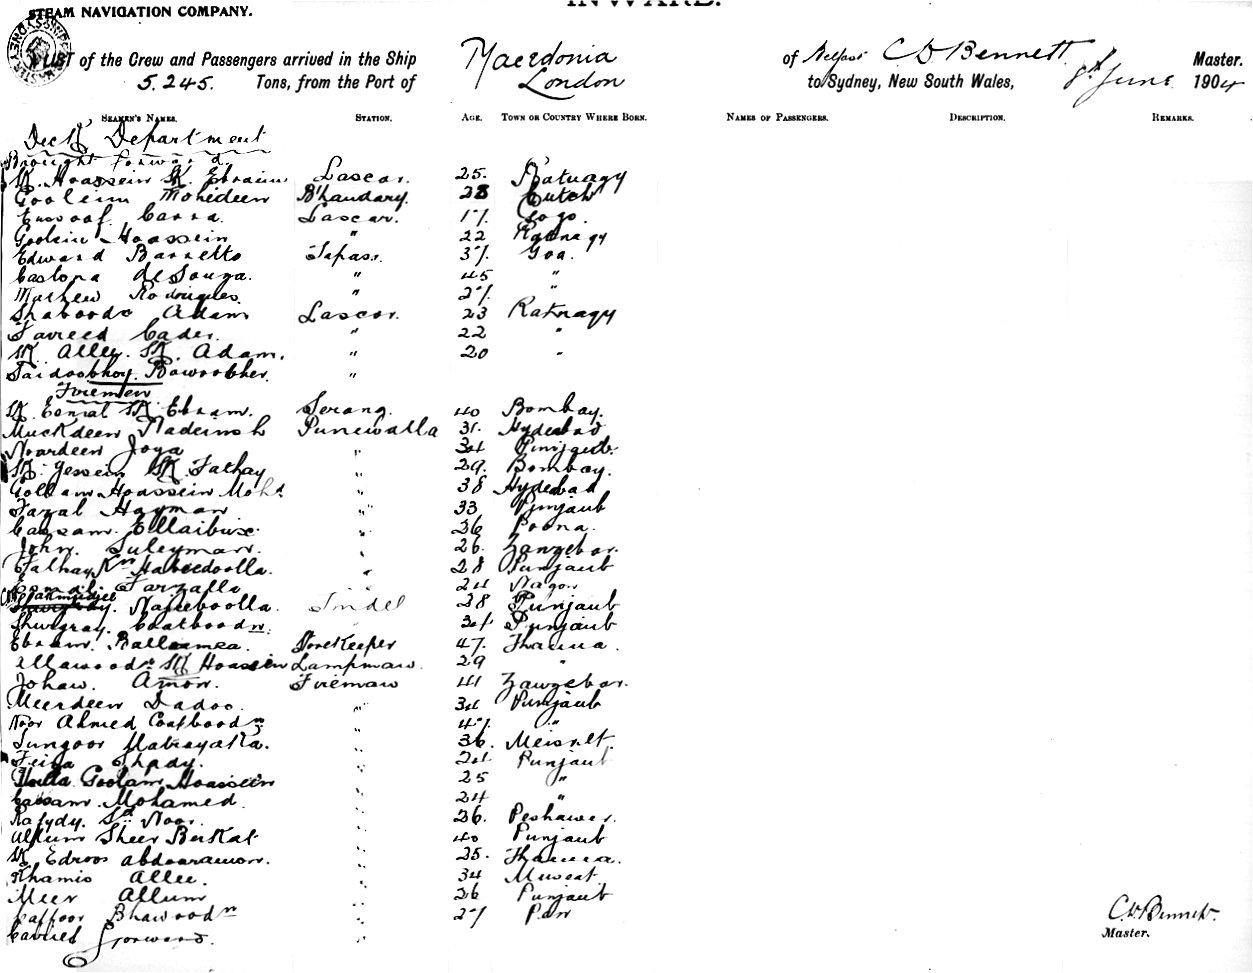 INWARD.
STEAM NAVIGATION COMPANY.
LIST of the Crew and Passengers arrived in the Ship Macedonia of Belfast C D Bennett Master.
5.245. Tons, from the Port of London to Sydney, New South Wales, 8th June 1904
SEAMEN'S NAMES. STATION. AGE. TOWN OR COUNTRY WHERE BORN. NAMES OF PASSENGERS. DESCRIPTION. REMARKS.
Deck Department
Brought forward.
Sk. Hoassein Sk. Ebraim Lascar. 25. Ratnagy
Goolam Mohideen B'handary. 28 Cutch
Essoof Cassa. Lascar. 17. Gogo.
Goolam Hoassein " 22 Ratnagy
Edward Barretto Topass. 37. Goa.
deSouza. " 45 "
Mathew Rodrigues " 27. "
Adam Lascar. 23 Ratnagy
Fareed Cader. " 22 "
Sk Alley. Sk. Adam. " 20 "
Bawoobhey. "
Firemen
Sk Esmal Sk Ebram. Serang. 40 Bombay.
Muckdeen Punewalla 31. Hydebad
Noordeen Joya " 34
Sk. Yessein Sk Fathay " 29. Bombay.
Gollam Hoassein Mohd " 38 Hydebad
Fazal Hayman " 33 Punjaub
Cassam Ellaibux. " 36 Poona.
John. Suleyman. " 26. Zangebar.
Fathay Kn Habeedoolla. " 28 Punjaub
Farzalla " 24
Najeeboolla. Tindel 38 Punjaub
Coatboodn. 34 Punjaub
Ebram. Balleamea. Storekeeper 47. Thanna.
Sk Hoassein Lampman. 29 "
Johan. Amon. Fireman 41 Zangebar.
Meerdeen Dadoo. " 34 Punjaub
Noor Ahmed Coatboodn " 47. "
Sungoor " 36.
" 24. Punjaub
Goolam Hoassein " 25 "
Cassam. Mohamed. " 24 "
Noor. " 26. Peshawer.
Allum Sheer Berkat " 40 Punjaub
Sk Edroos abdoaramon. " 25. Thanna.
Khamis Allee. " 34 Muscat
Meer Allum " 26 Punjaub
Gaffoor Bhawoodn " 27
Carried forward.
C.D.Bennett.
Master.